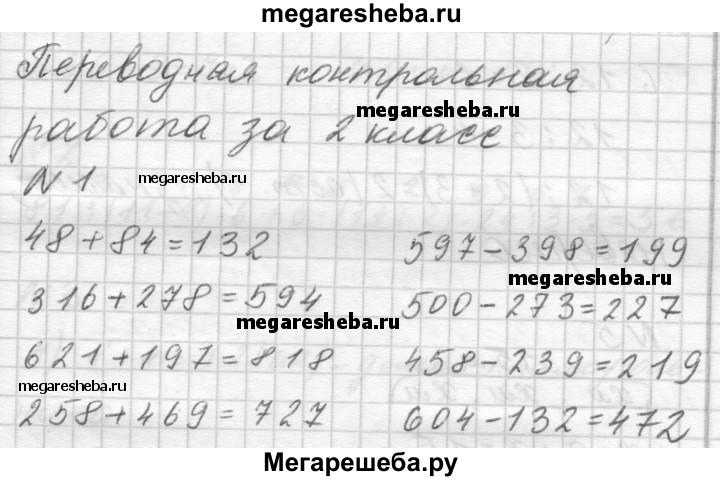 megaresheba.ru
Переводная контрольная
megaresheba.ru
работа за 2 класс
N 1
megaresheba.ru
48+84=132
597-398=199
megaresheba.ru
316+278=594
500-273=227
megaresheba.ru
621+197=818
458-239=219
megaresheba.ru
258+469=727
604-132=472
Мегарешеба.ру